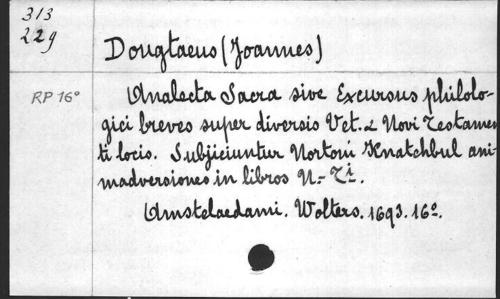 313
229
Dougtaeus (Joannes)
RP 16°
Analecta Sacra sive Excursus philolo-
gici breves super diversis Vet. & Novi Testamen
ti locis. Subjiciuntur Nortoni Knatchbul ani-
madversiones in libros N. Ti.
Amstelaedami. Wolters. 1693. 16°.